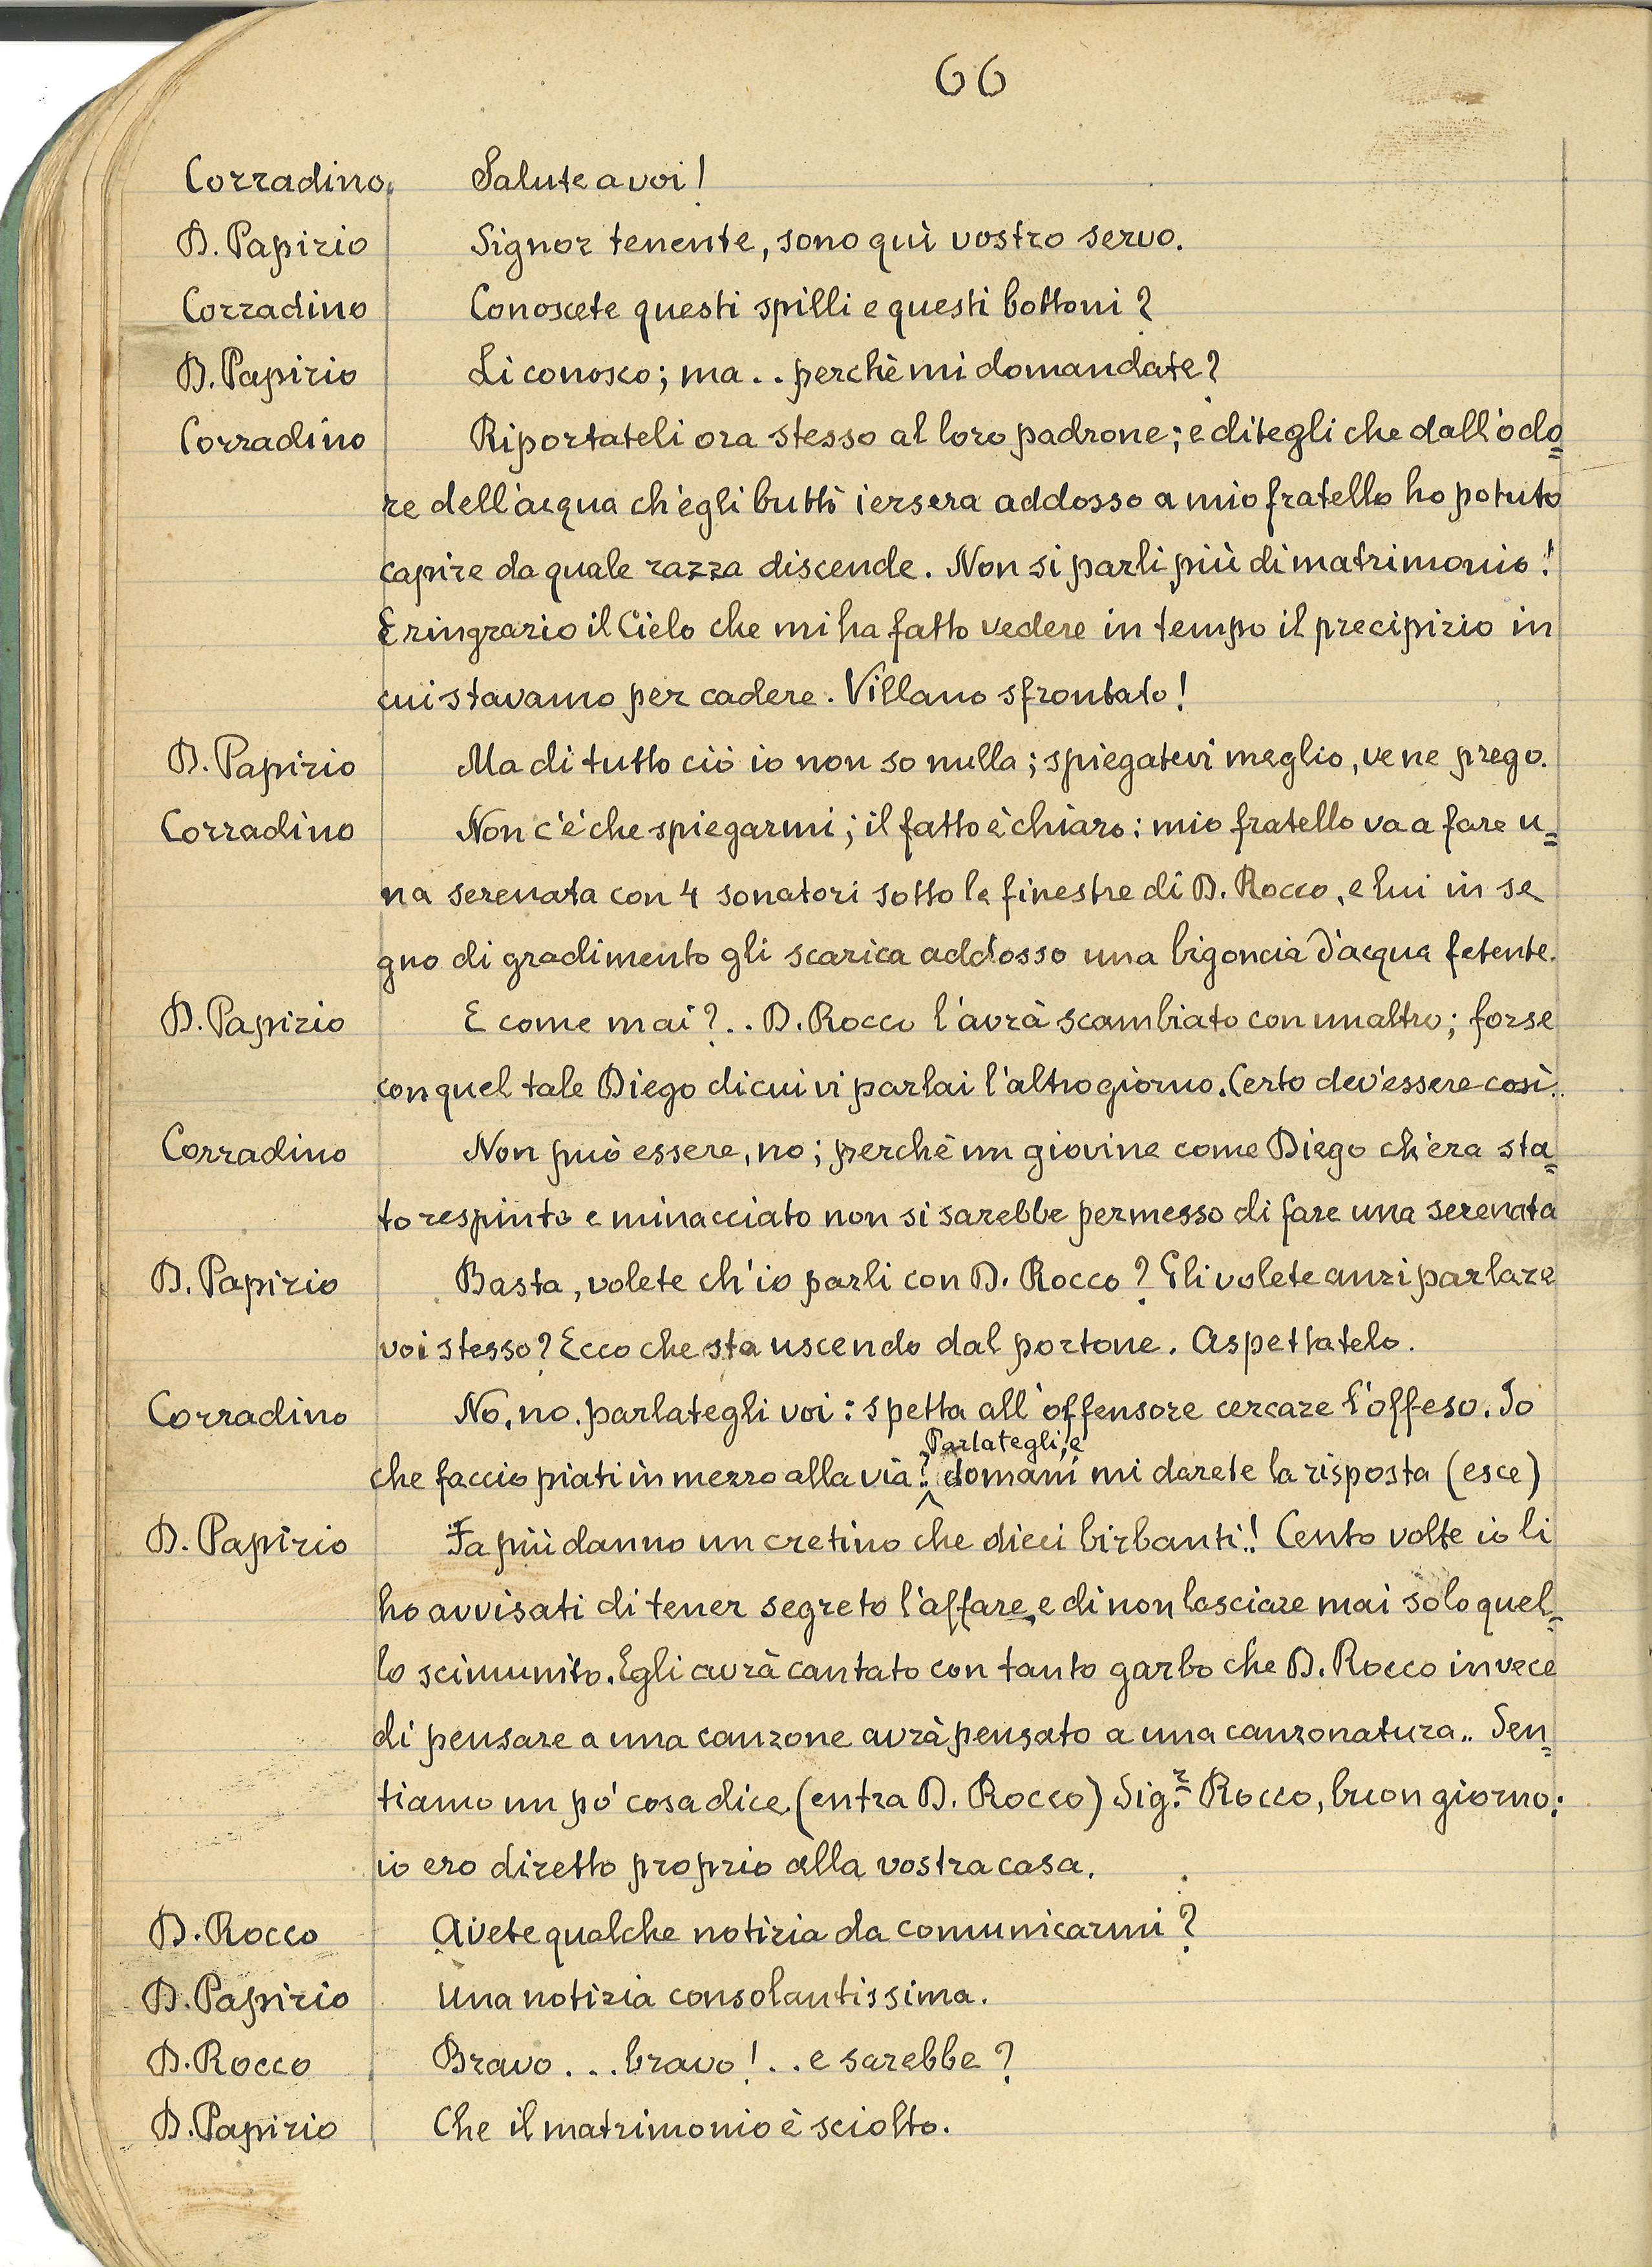 66
Corradino. Salute a voi!
D. Papirio Signor tenente, sono quì vostro servo.
Corradino Conoscete questi spilli e questi bottoni?
D. Papirio Li conosco; ma.. perchè mi domandate?
Corradino Riportateli ora stesso al loro padrone; e ditegli che dall'odo=
re dell'acqua ch'egli buttò iersera addosso a mio fratello ho potuto
capire da quale razza discende. Non si parli più di matrimonio!
E ringrazio il Cielo che mi ha fatto vedere in tempo il precipizio in
cui stavamo per cadere. Villano sfrontato!
D. Papirio Ma di tutto ciò io non so nulla; spiegatevi meglio, ve ne prego.
Corradino Non c'è che spiegarmi; il fatto è chiaro: mio fratello va a fare u=
na serenata con 4 sonatori sotto le finestre di D. Rocco, e lui in se
gno di gradimento gli scarica addosso una bigoncia d'acqua fetente.
D. Papirio E come mai?.. D. Rocco l'avrà scambiato con un altro; forse
con quel tale Diego di cui vi parlai l'altro giorno. Certo dev'essere così..
Corradino Non può essere, no; perchè un giovine come Diego ch'era sta=
to respinto e minacciato non si sarebbe permesso di fare una serenata
D. Papirio Basta, volete ch'io parli con D. Rocco? Gli volete anzi parlare
voi stesso? Ecco che sta uscendo dal portone. Aspettatelo.
Corradino No, no. parlategli voi: spetta all'offensore cercare l'offeso. Io
Parlategli, e
che faccio piati in mezzo alla via? domani mi darete la risposta (esce)
D. Papirio Fa più danno un cretino che dieci birbanti!! Cento volte io li
ho avvisati di tener segreto l'affare, e di non lasciare mai solo quel=
lo scimunito. Egli avrà cantato con tanto garbo che D. Rocco invece
di pensare a una canzone avrà pensato a una canzonatura.. Sen=
tiamo un pò cosa dice. (entra D. Rocco) Sig.r Rocco, buon giorno:
io ero diretto proprio alla vostra casa.
D. Rocco Avete qualche notizia da comunicarmi?
D. Papirio Una notizia consolantissima.
D. Rocco Bravo... bravo!.. e sarebbe?
D. Papirio Che il matrimonio è sciolto.